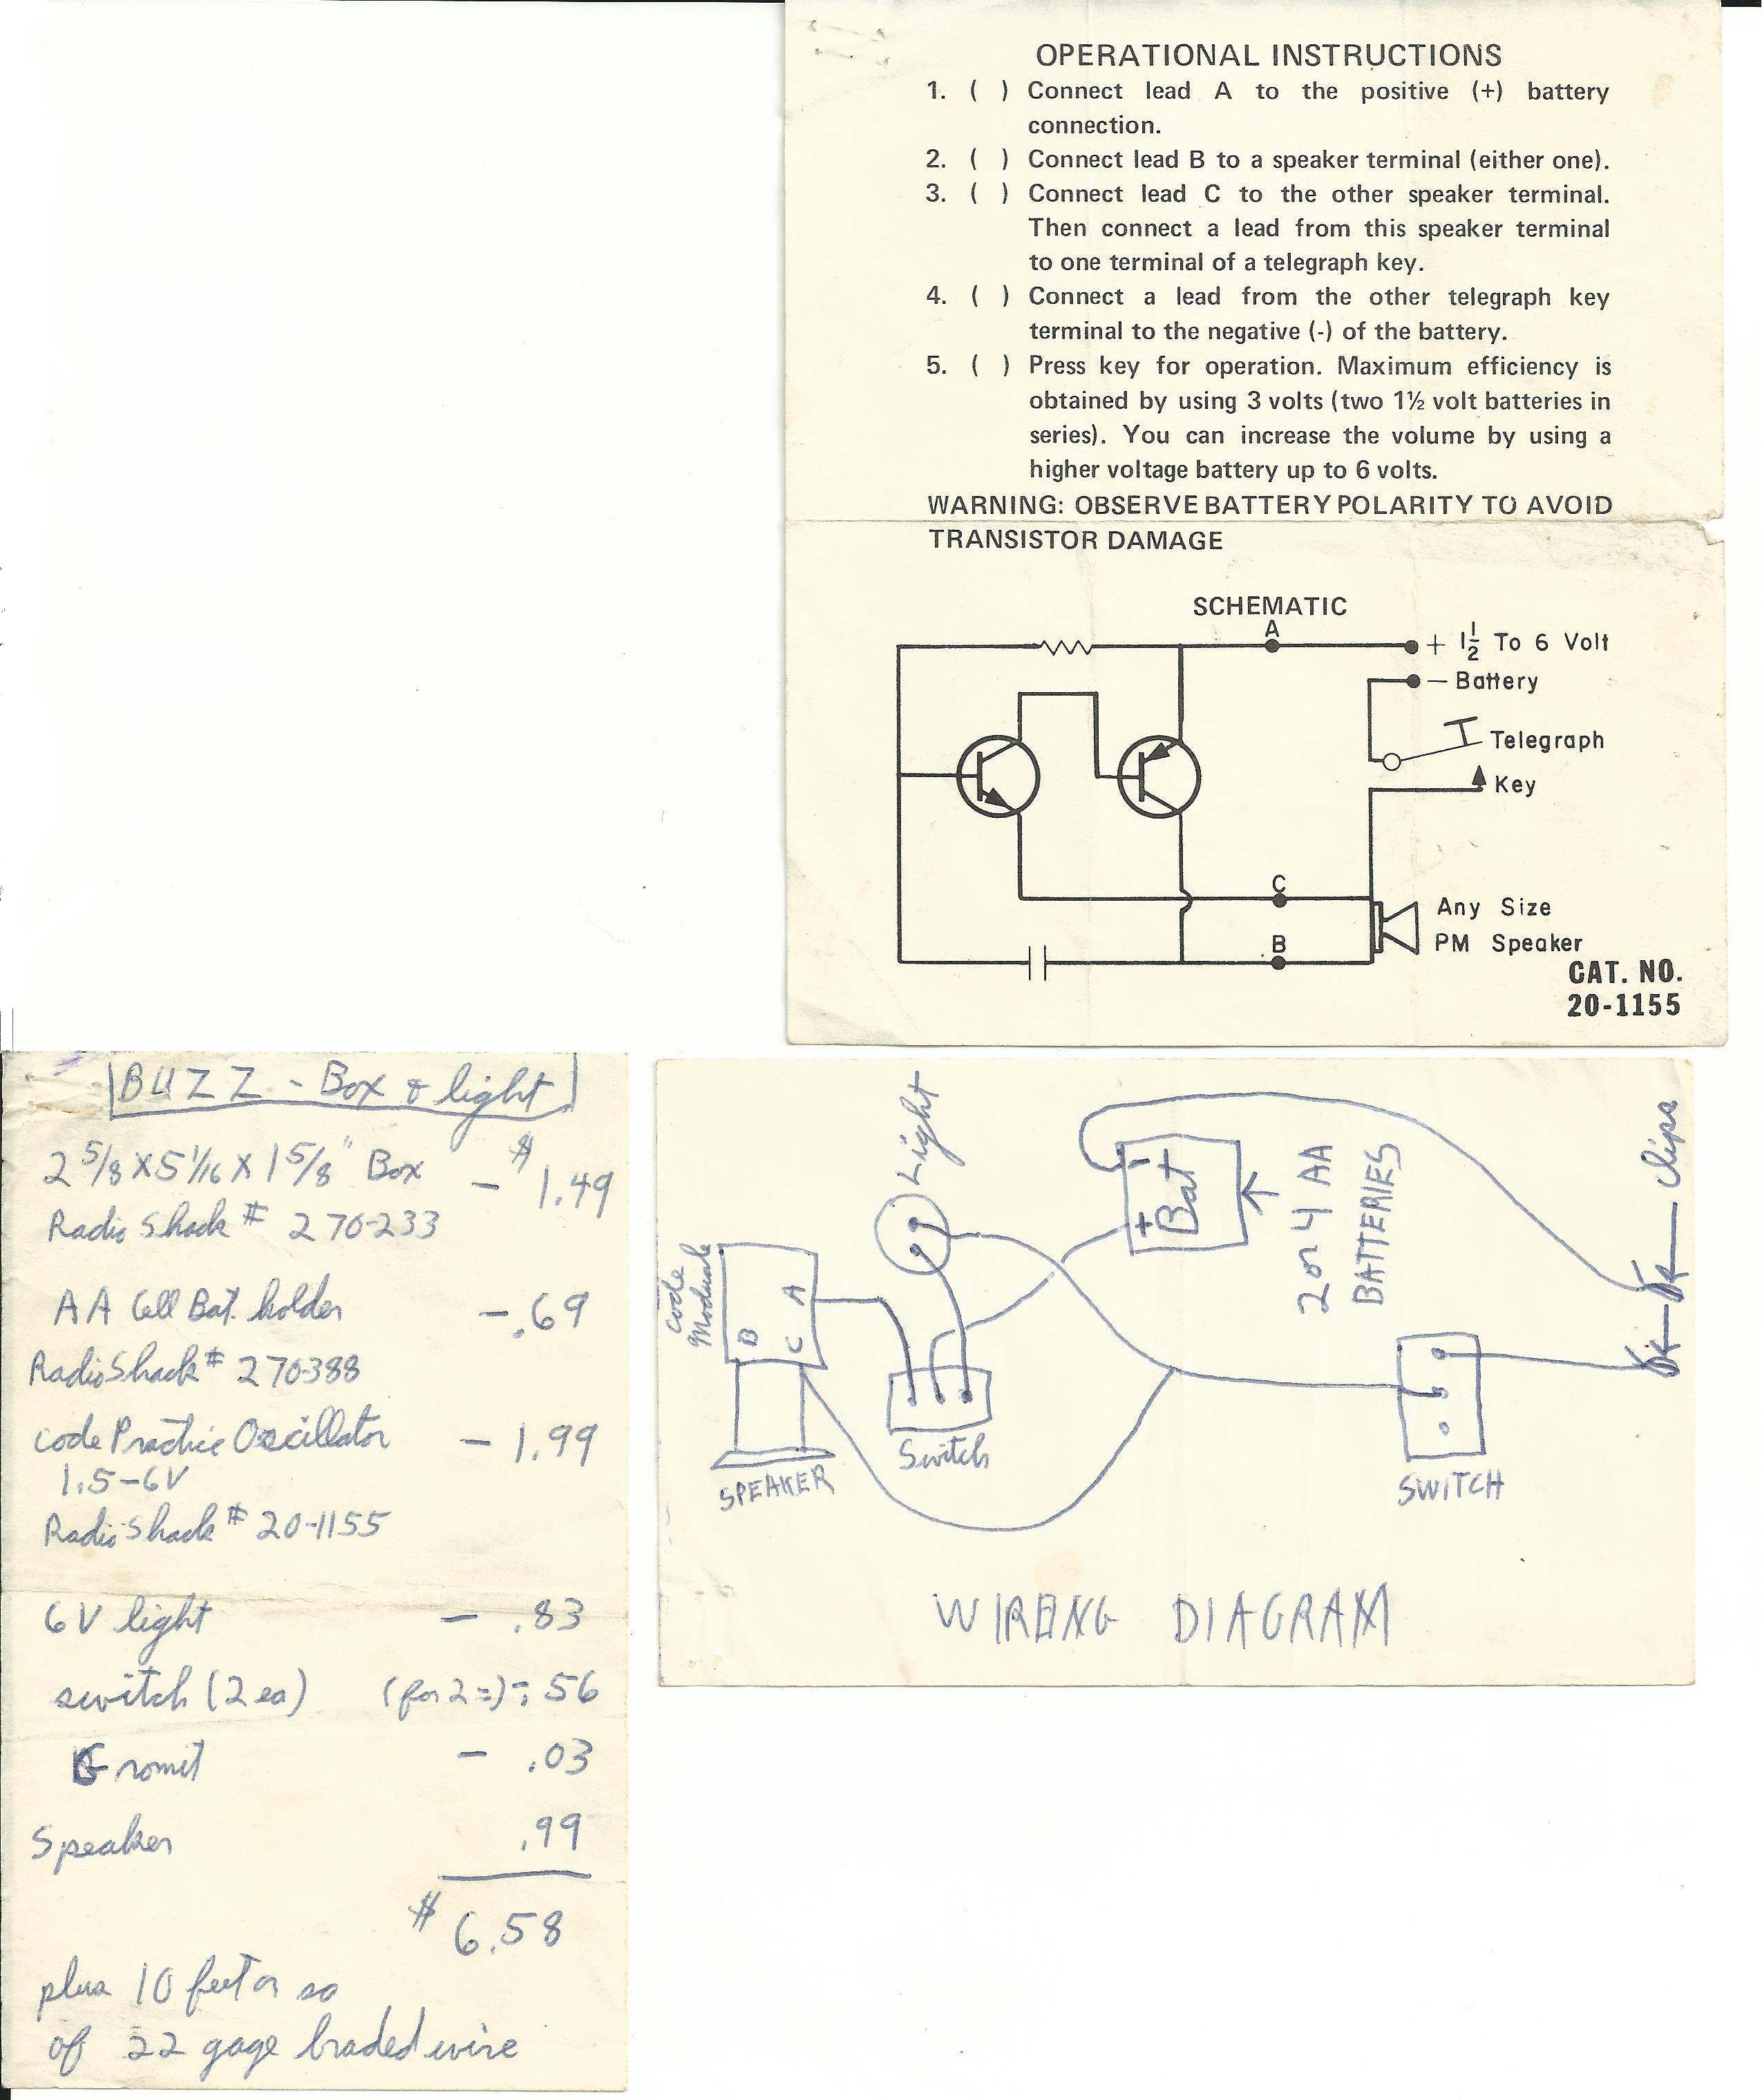 OPERATIONAL INSTRUCTIONS
1. ( ) Connect lead A to the positive (+) battery
connection.
2. ( ) Connect lead B to a speaker terminal (either one).
3. ( ) Connect lead C to the other speaker terminal.
Then connect a lead from this speaker terminal
to one terminal of a telegraph key.
4. ( ) Connect a lead from the other telegraph key
terminal to the negative (-) of the battery.
5. ( ) Press key for operation. Maximum efficiency is
obtained by using 3 volts (two 1½ volt batteries in
series). You can increase the volume by using a
higher voltage battery up to 6 volts.
WARNING: OBSERVE BATTERY POLARITY TO AVOID
TRANSISTOR DAMAGE
SCHEMATIC
A
+ 1½ To 6 Volt
− Battery
Telegraph
Key
C
Any Size
B
PM Speaker
CAT. NO.
20-1155
BUZZ - Box & light
2 5/8 X 5 1/16 X 1 5/8" Box - $1.49
Radio Shack # 270-233
AA Cell Bat. holder - .69
Radio Shack # 270388
code Practice Oscillator - 1.99
1.5-6V
Radio Shack # 20-1155
6V light - .83
switch (2 ea) (for 2=)- .56
Gromit - .03
Speaker .99
$6.58
plus 10 feet or so
of 22 gage braded wire
Light
Clips
- Bat +
2 or 4 AA
BATTERIES
Code
Moduale
A
B
C
Switch
SPEAKER
SWITCH
WIRENG DIAGRAM